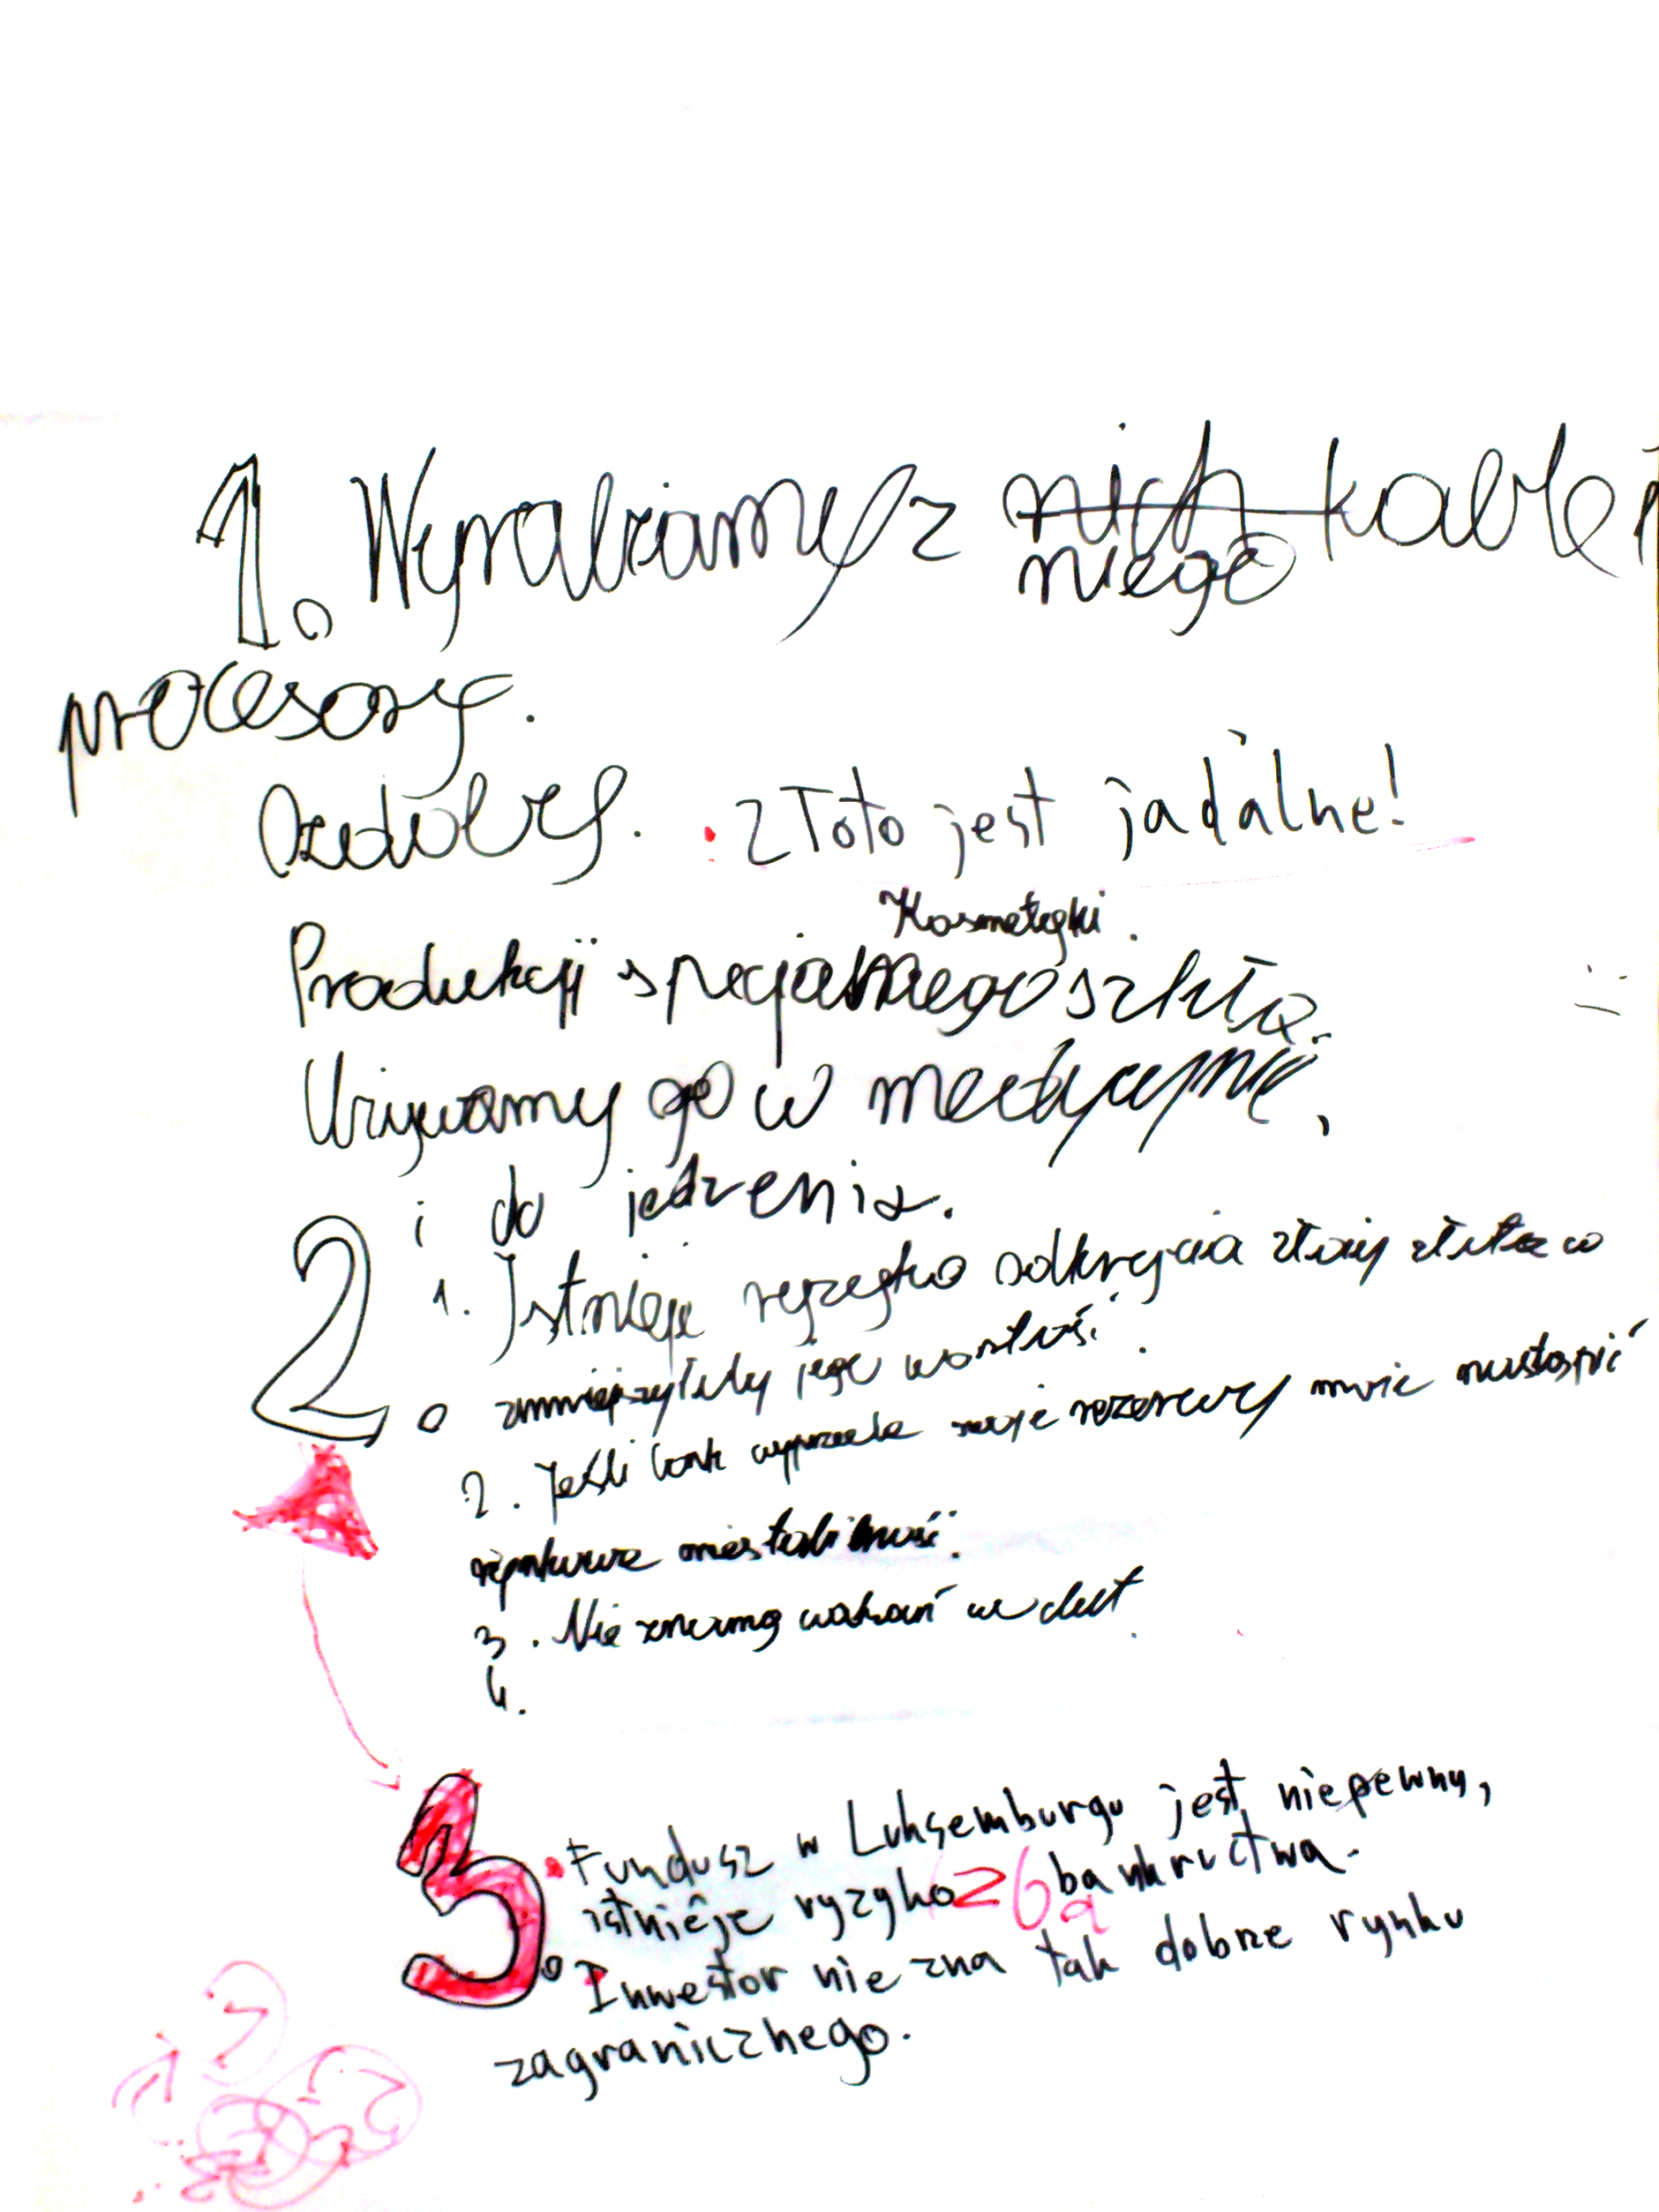 1. Wyrabiamy z nich kable i
niego
procesory.
Ozdoby. złoto jest jadalne!
Kosmetyki.
Produkcji specjalnego szkła.
Używamy go w medycynie,
i do jedzenia.
2. 1. Istnieje ryzyko odkrycia złóż złota co
zmniejszyłoby jego wartość.
2. Jeśli bank wyprzeda swoje rezerwy może nastąpić
rynkowa niestabilność.
3. Nie znamy wahań
4.
3. Fundusz w Luksemburgu jest niepewny,
istnieje ryzyko bankructwa.
26a
Inwestor nie zna tak dobrze rynku
zagranicznego.